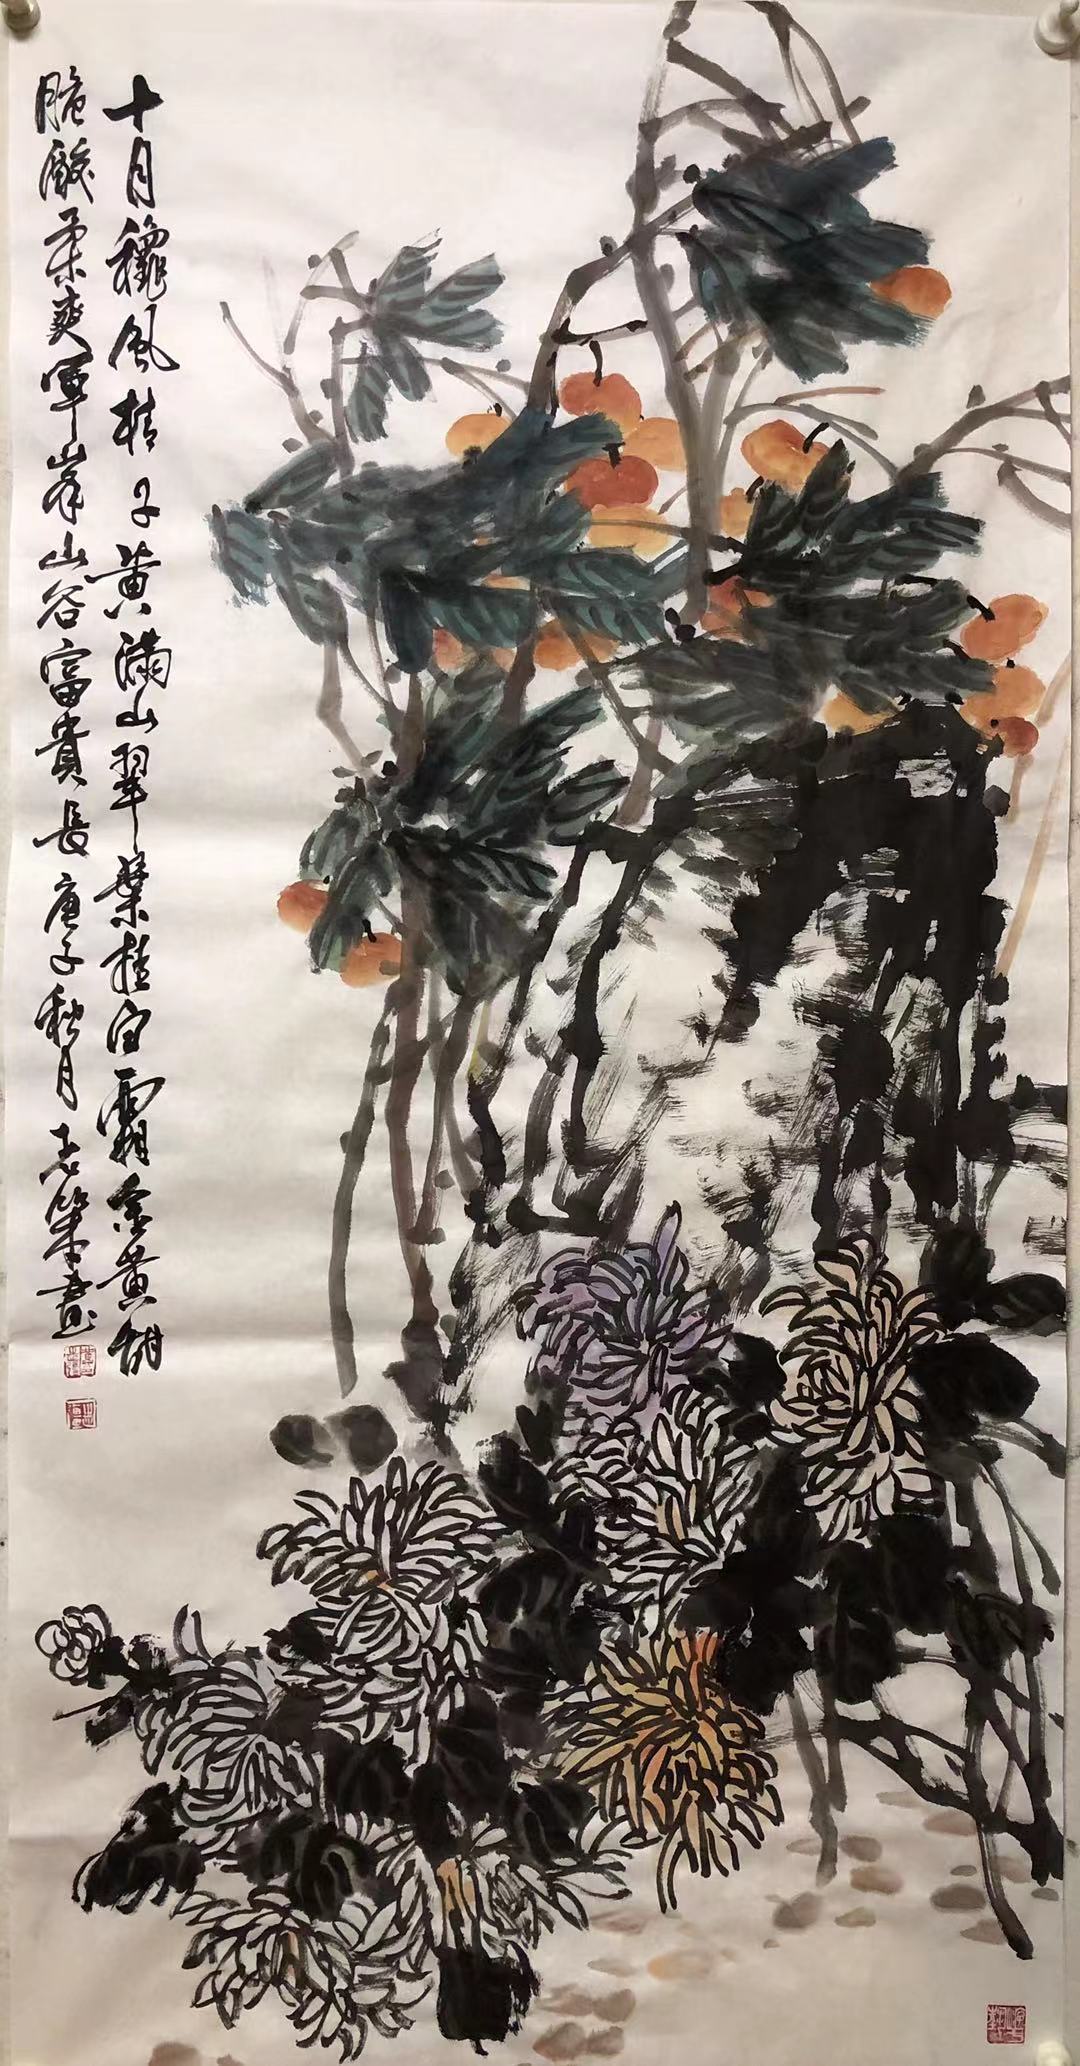 十月秋风桔子黄满山翠叶挂白霜金黄甜
脆酸柔爽军峰山谷富贵长庚子秋月志荣画